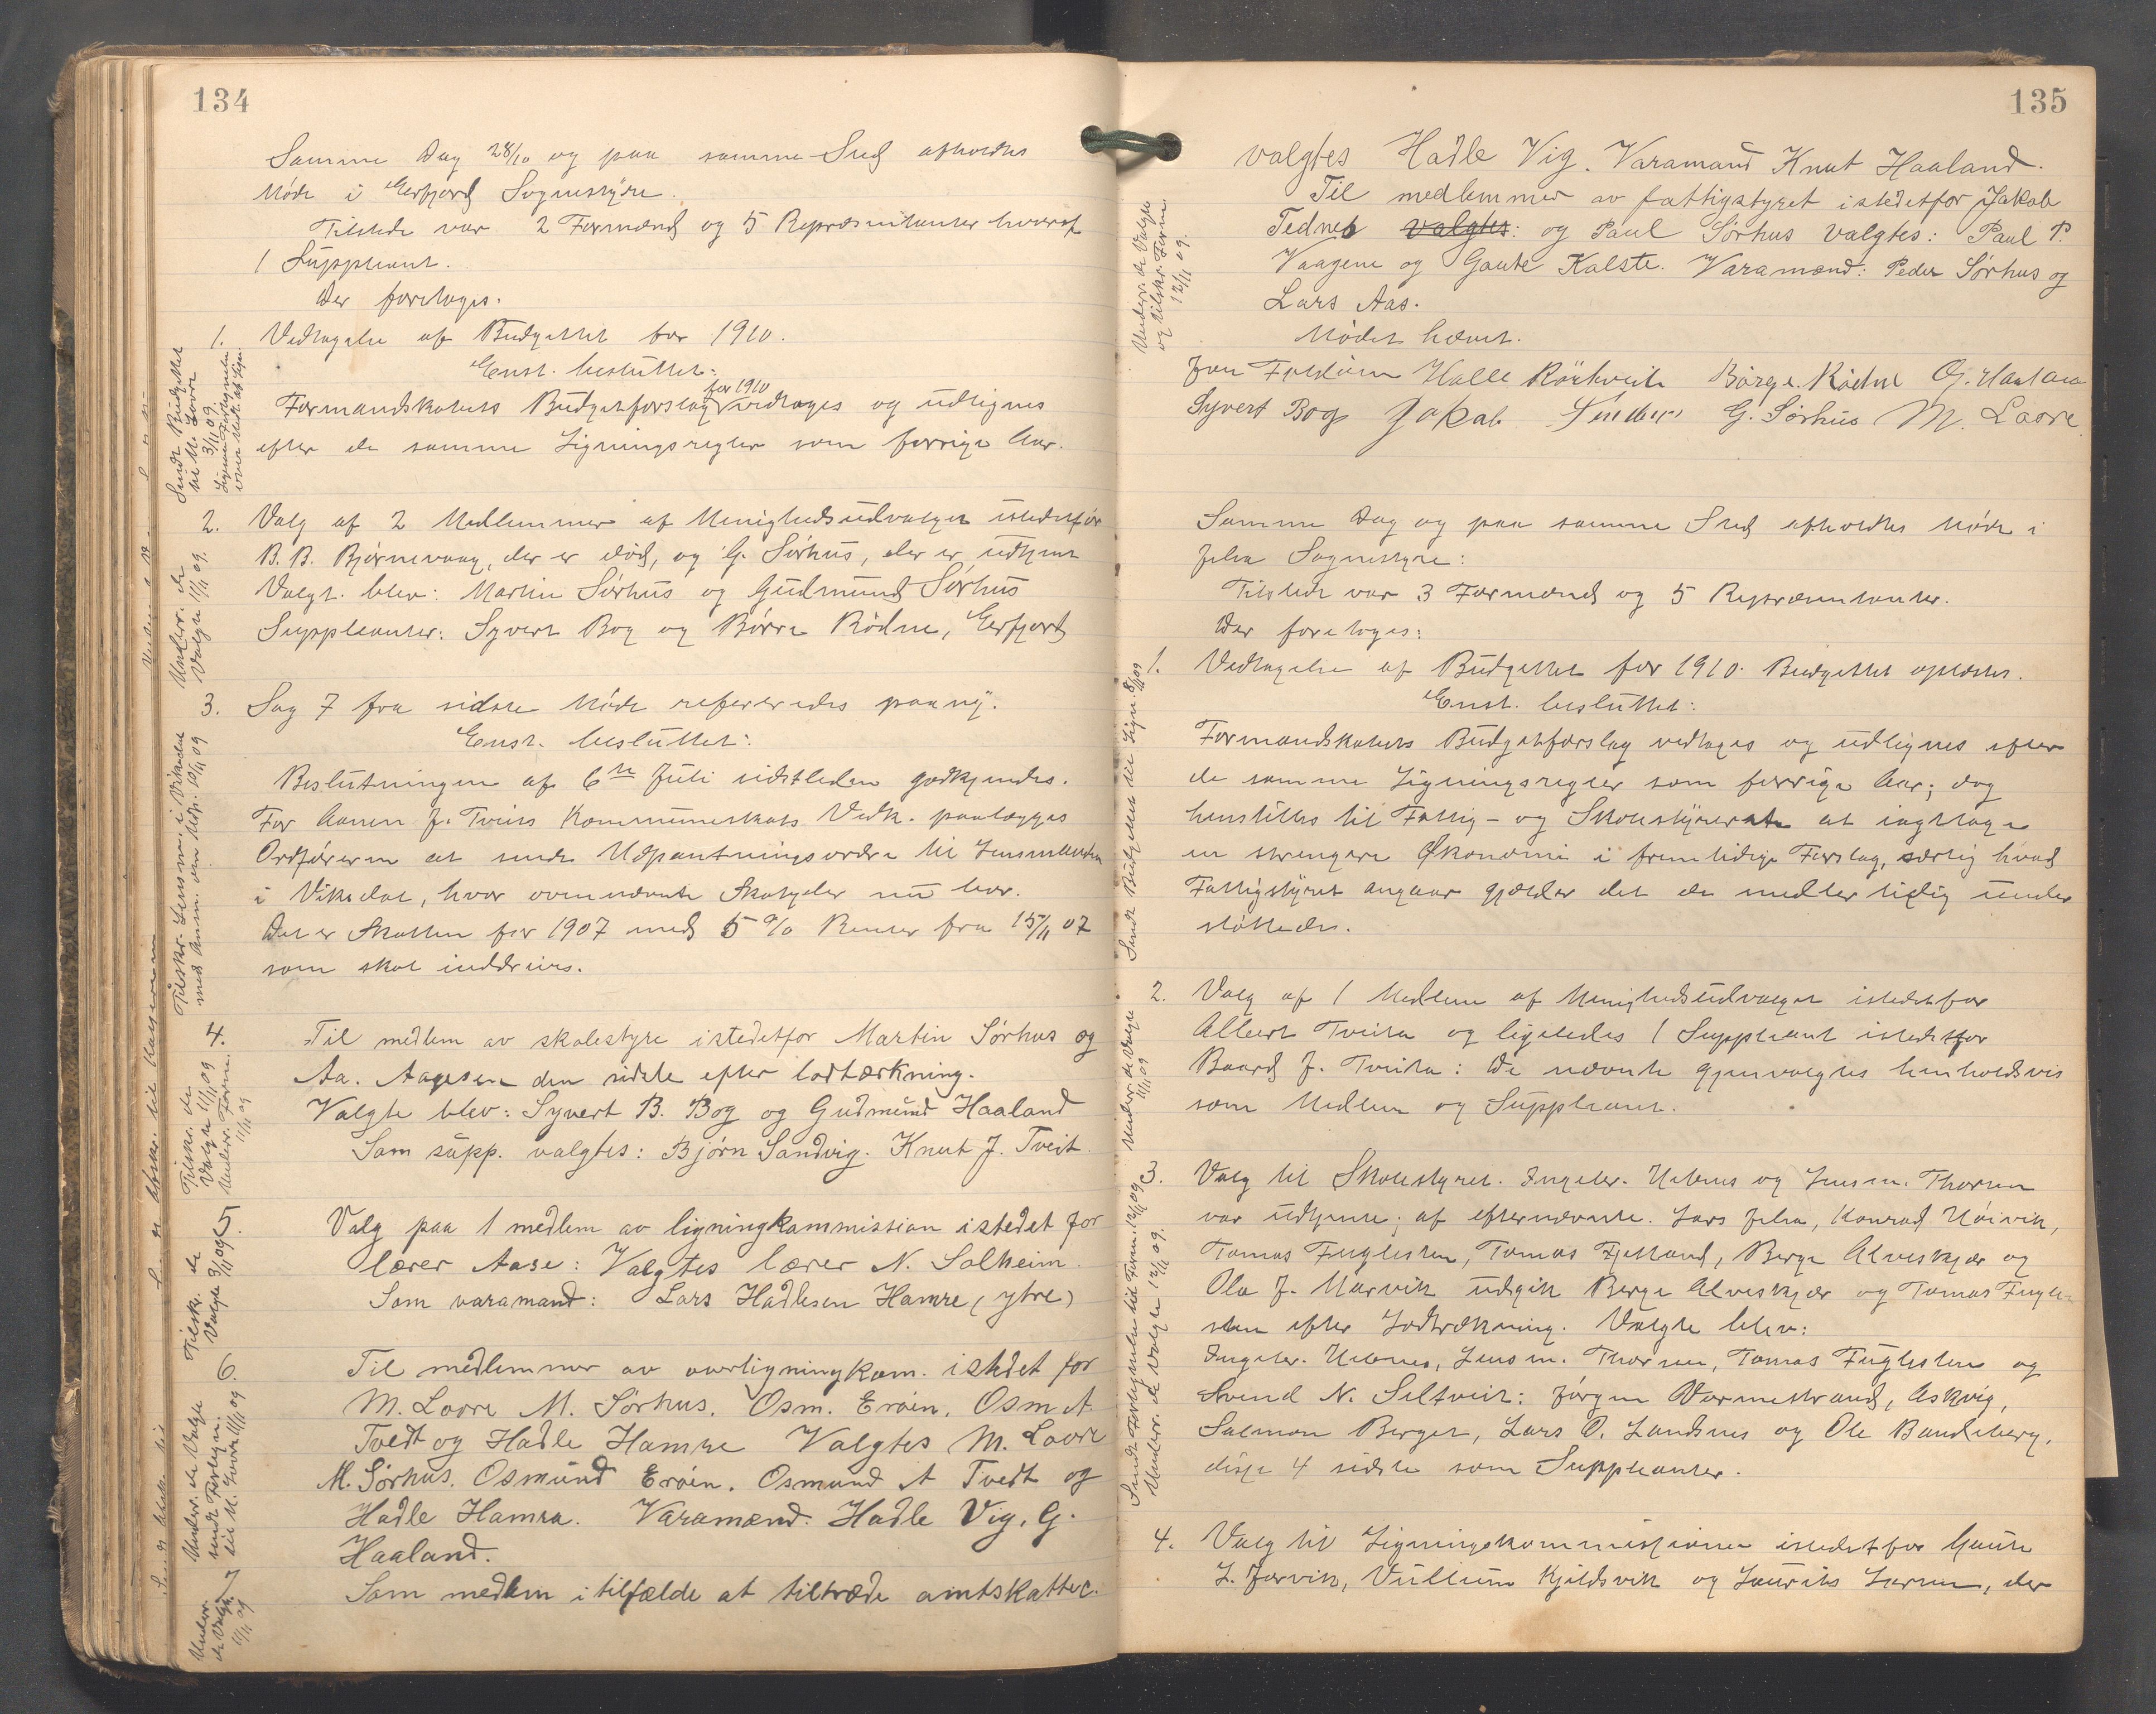 134
Samme Dag 28/10 og paa samme Sted afholdtes
Møde i Erfjord Sognestyre.
Tilstede var 2 Formænd og 5 Repræsentanter hvoraf
1 Suppleant.
Der foretoges:
1. Vedtagelse af Budgettet for 1910.
Enst. besluttet:
Formandskabets Budgetforslag for 1910 vedtages og udlignes
efter de samme Ligningsregler som forrige Aar.
Sendt Budgettet
til M. Lovre
3/11 09.
2. Valg af 2 Medlemmer af Menighedsudvalget istedetfor
B. B. Bjørnevaag, der er død, og G. Sørhus, der er udtjent
Valgt blev: Martin Sørhus og Gudmund Sørhus
Suppleanter: Syvert Bog og Børre Rødne, Erfjord
Underr. de
Valgte 11/11 09.
3. Sag 7 fra sidste Møde refereredes paany.
Enst. besluttet:
Beslutningen af 6te Juli sidstleden godkjendes.
For Aanen J. Tveits Kommuneskats Vedk. paalægges
Ordføreren at sende Udpantningsordre til Lensmanden
i Vikedal, hvor ovennævnte Skatyder nu bor.
Det er Skatten for 1907 med 5 % Renter fra 15/11 07
som skal inddrives.
Tilskr. Lensm. i Vikedal
med Anm. om Udp. 10/11 09
4. Til medlem av skolestyre istedetfor Martin Sørhus og
Aa. Aagesen den sidste efter lodtrækning.
Valgte blev: Syvert B. Bog og Gudmund Haaland
Som supp. valgtes: Bjørn Sandvig. Knut J. Tveit.
Tilskr. de
Valgte 11/11 09
Underr. Form.
11/11 09
5. Valg paa 1 medlem av ligningkommission istedet for
lærer Aase: Valgtes lærer N. Solheim.
Som varamand: Lars Hadlesen Hamre (ytre)
Tilsk. de
Valgte 9/11 09
6. Til medlemmer av overligningkom. istedet for
M. Lovre M. Sørhus. Osm. Erøien. Osm A
Tvedt og Hadle Hamre Valgtes M. Lovre
M. Sørhus. Osmund Erøien. Osmund A Tvedt og
Hadle Hamra. Varamænd. Hadle Vig. G.
Haaland.
Underr. de Valgte
sendt Fortegn.
til M. Lovre 11/11 09
7 Som medlem i tilfælde at tiltræde amtskattec.
Underr.
de Valgte
11/11 09
135
valgtes Hadle Vig. Varamand Knut Haaland.
Til medlemmer av fattigstyret istedetfor Jakob
Tednes valgtes: og Paul Sørhus valgtes: Paul P.
Vaagene og Gaute Kalste. Varamænd: Peder Sørhus og
Lars Aas.
Underr. de Valgte
og tilskr. Form
12/11 09.
Mødet hævet.
Halle Rørkveit Børge Rødne G. Haaland
Syvert Bog Jakob G. Sørhus M. Lovre
Samme Dag og paa samme Sted afholdtes Møde i
Jelsa Sognestyre:
Tilstede var 3 Formænd og 5 Repræsentanter.
Der foretoges:
1. Vedtagelse af Budgettet for 1910. Budgettet oplæstes.
Enst. besluttet:
Formandskabets Budgetforslag vedtages og udlignes efter
de samme Ligningsregler som forrige Aar; dog
henstilles til Fattig- og Skolestyrerne at iagttage
en strengere Økonomi i fremtidige Forslag, særlig hvad
Fattigstyret angaar gjælder det de midlertidig under
støttedes.
Sendt Budgettet til Lign. 8/11 09
2. Valg af 1 Medlem af Menighedsudvalget istedetfor
Albert Tveita og ligeledes 1 Suppleant istedetfor
Baard J. Tveita: De nævnte gjenvalgtes henholdsvis
som Medlem og Suppleant.
Underr. de Valgte
11/11 09
3. Valg til Skolestyret. Ingebr. Hebnes og Lensm. Thorsen
var udtjente; af efternævnte. Lars Jelsa, Konrad Høivik,
Tomas Fuglesten, Tomas Fjelland, Berge Alveskjær og
Ola J. Marvik udgik Berge Alveskjær og Tomas Fugle-
sten efter Lodtrækning. Valgte blev:
Ingebr. Hebnes, Lensm. Thorsen, Tomas Fuglesten og
Svend N. Seltveit: Jørgen Varmestrand, Askvig,
Salmon Berget, Lars O. Landsnes og Ole Bandeberg,
disse 4 sidste som Suppleanter.
Sendt Fortegnelse til Form. 12/11 09
Underr. de Valgte 12/11 09.
4. Valg til Ligningskommissionen istedetfor Gaute
L. Jorvik, Vullum Kjeldsvik og Laurits Larsen, der